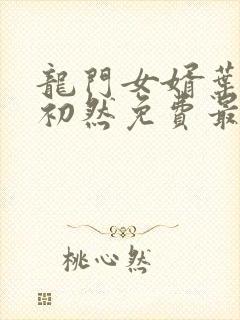 龍門女婿葉
初然免費最
桃心然